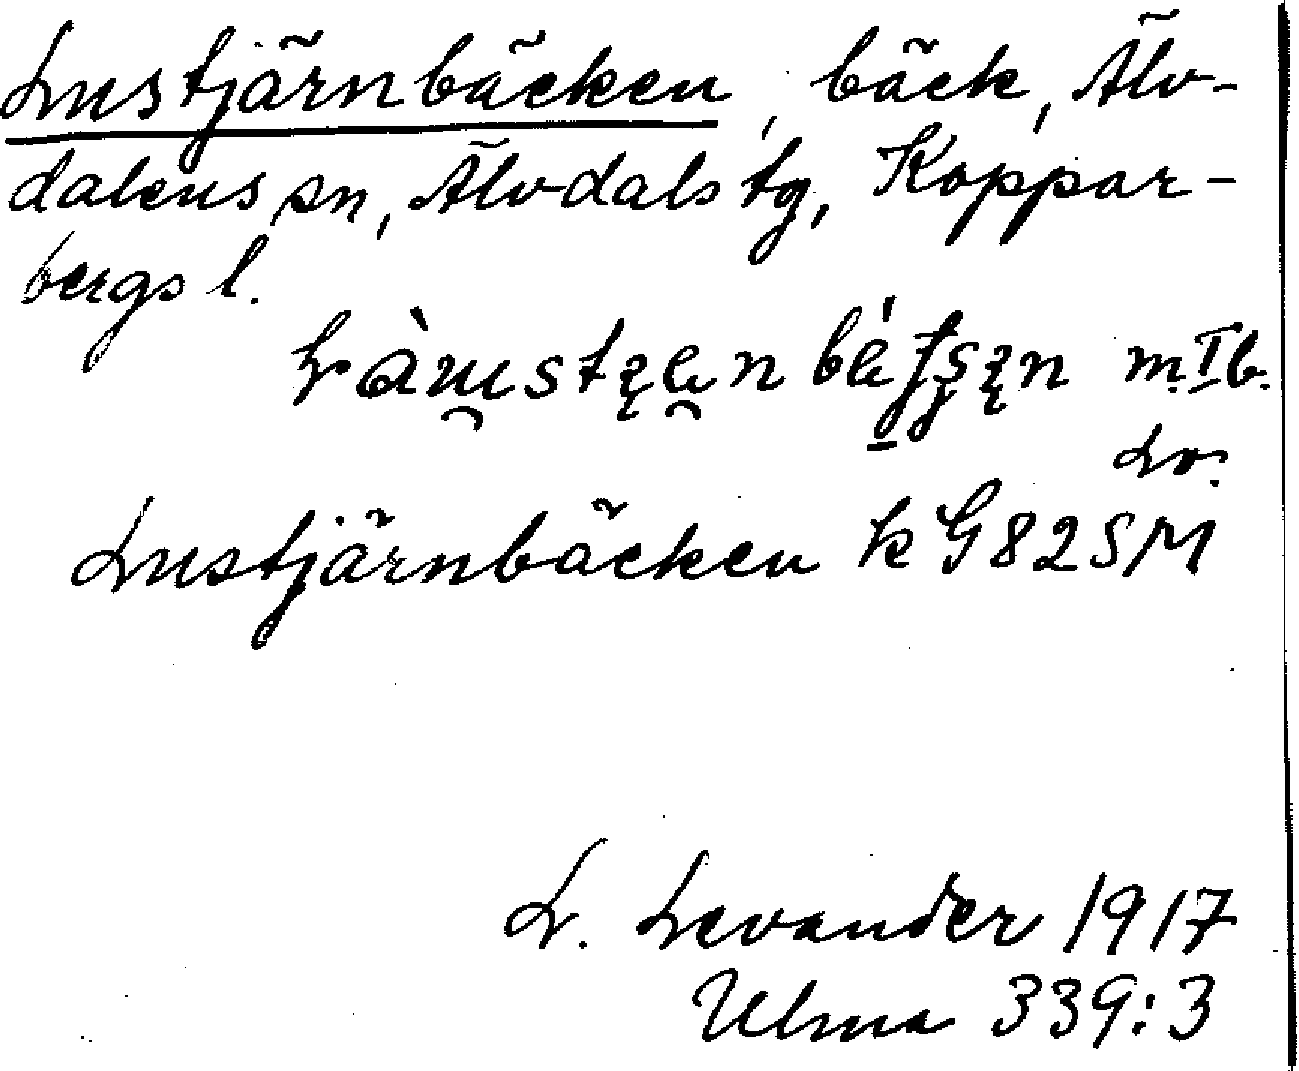 Lustjärnbäcken, bäck, Älv-
dalens sn, Älvdals tg, Koppar-
bergs l.
m. I b.
Lv.
Lustjärnbäcken k G82SM
L. Levander 1917
Ulma 339:3